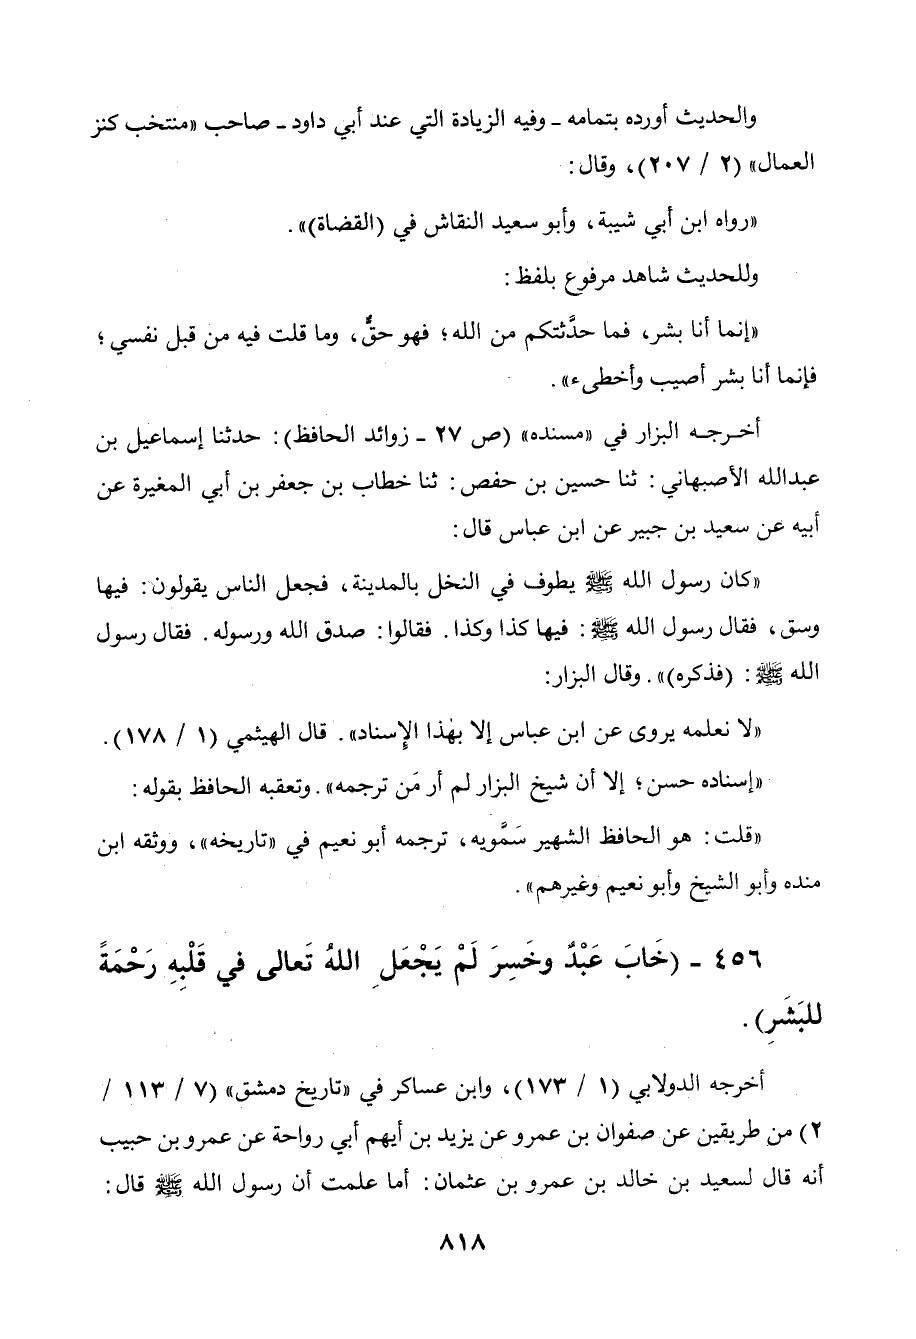 والحديث أورده بتمامه ـ وفيه الزيادة التي عند أبي داود ـ صاحب «منتخب كنز
العمال» (٢ / ٢٠٧)، وقال:
«رواه ابن أبي شيبة، وأبو سعيد النقاش في (القضاة)».
وللحديث شاهد مرفوع بلفظ:
«إنما أنا بشر، فما حدَّثتكم من الله؛ فهو حقٌّ، وما قلت فيه من قبل نفسي؛
فإنما أنا بشر أصيب وأخطىء».
أخـرجـه البزار في «مسنده» (ص ٢٧ ـ زوائد الحافظ): حدثنا إسماعيل بن
عبدالله الأصبهاني: ثنا حسين بن حفص: ثنا خطاب بن جعفر بن أبي المغيرة عن
أبيه عن سعيد بن جبير عن ابن عباس قال:
«كان رسول الله ﷺ يطوف في النخل بالمدينة، فجعل الناس يقولون: فيها
وسق، فقال رسول الله ﷺ: فيها كذا وكذا. فقالوا: صدق الله ورسوله. فقال رسول
الله ﷺ: (فذكره)». وقال البزار:
«لا نعلمه يروى عن ابن عباس إلا بهٰذا الإسناد». قال الهيثمي (١ / ١٧٨).
«إسناده حسن؛ إلا أن شيخ البزار لم أر مَن ترجمه». وتعقبه الحافظ بقوله:
«قلت: هو الحافظ الشهير سَمَّويه، ترجمه أبو نعيم في «تاريخه»، ووثقه ابن
منده وأبو الشيخ وأبو نعيم وغيرهم».
٤٥٦ ـ (خَابَ عَبْدٌ وخَسِرَ لَمْ يَجْعَلِ اللهُ تَعالى في قَلْبِهِ رَحْمَةً
للبَشَرِ).
أخرجه الدولابي (١ / ١٧٣)، وابن عساكر في «تاريخ دمشق» (٧ / ١١٣ /
٢) من طريقين عن صفوان بن عمرو عن يزيد بن أيهم أبي رواحة عن عمرو بن حبيب
أنه قال لسعيد بن خالد بن عمرو بن عثمان: أما علمت أن رسول الله ﷺ قال:
٨١٨